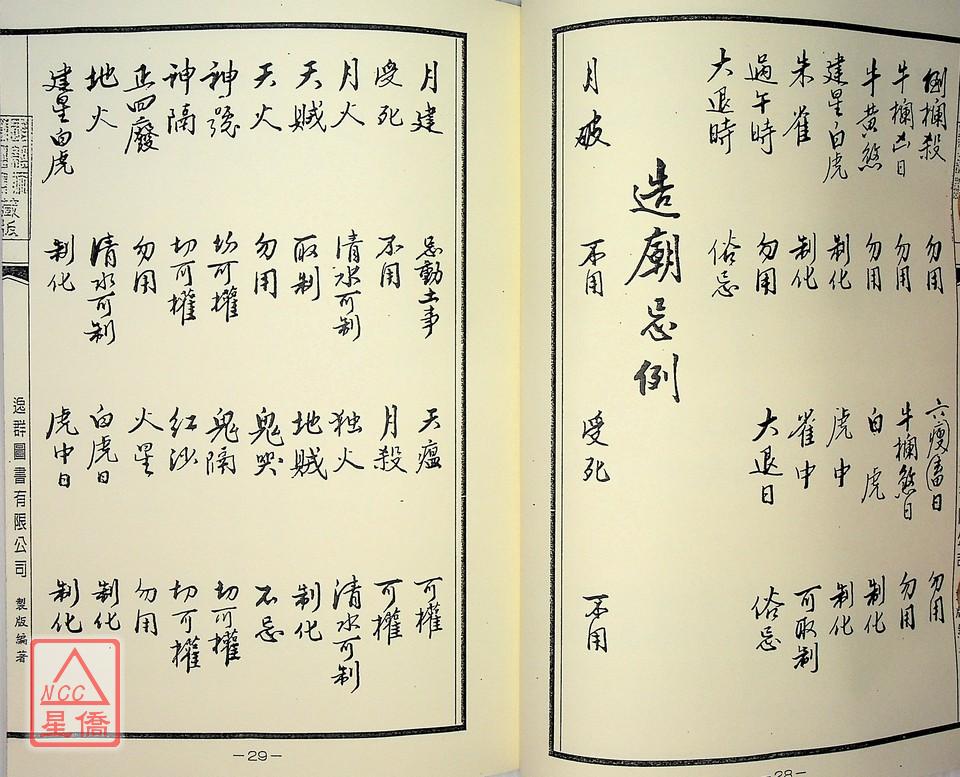 倒欄殺 勿用 六瘦畜日 勿用
牛欄凶日 勿用 牛欄煞日 勿用
牛黄煞 勿用 白虎 制化
建星白虎 制化 虎中 制化
朱雀 制化 雀中 可取制
過午時 勿用 大退日 俗忌
大退時 俗忌
造廟忌例
月破 不用 受死 不用
-28-
月建 忌動土事 天瘟 可權
受死 不用 月殺 可權
月火 清水可制 独火 清水可制
天贼 取制 地贼 制化
天火 勿用 鬼哭 不忌
神號 切可權 鬼隔 切可權
神隔 切可權 红沙 切可權
正四廢 勿用 火星 勿用
地火 清水可制 白虎日 制化
建星白虎 制化 虎中日 制化
藏版
逸群圖書有限公司 製版編著
-29-
NCC
星僑